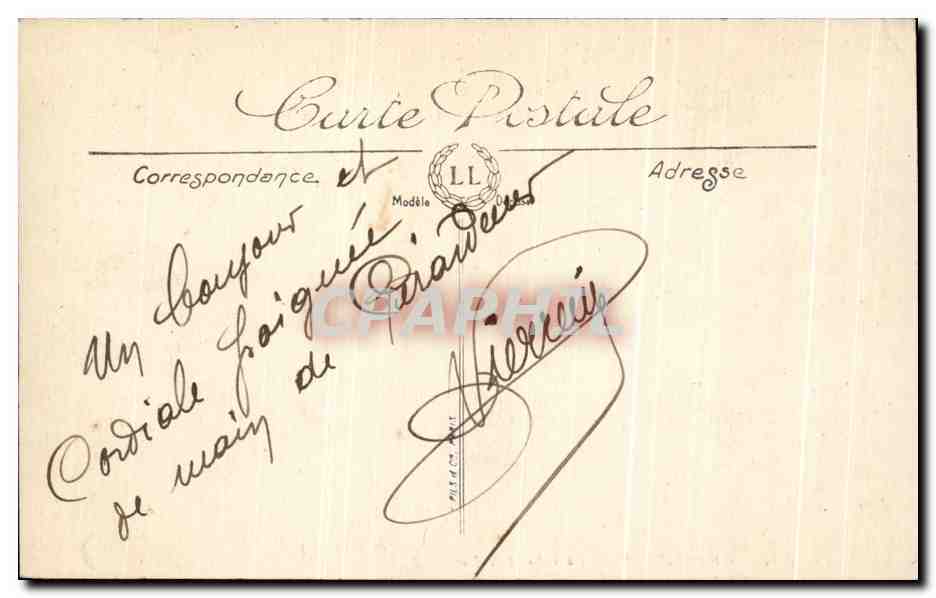 Carte Postale
Correspondance
Adresse
LL
Modèle Déposé
Un bonjour et
Cordiale poignée
de main de Gérardmer
Pierrein
CPAPHIL
FILS & Cie, PARIS